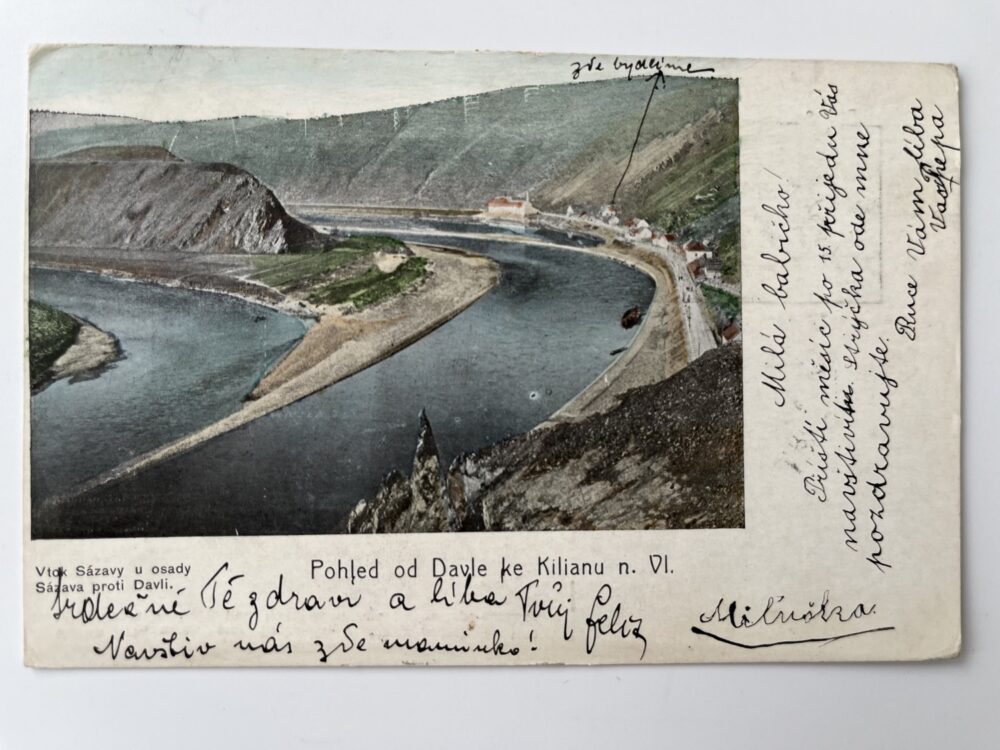 zde bydlíme
Milá babičko!
Příští měsíc po 15 přijedu Vás
navštíviti. Strýčka ode mne
pozdravujte.
Ruce Vám líbá
Vaše
Vtok Sázavy u osady
Sázava proti Davli.
Pohled od Davle ke Kilianu n. Vl.
Srdečně Tě zdraví a líbá Tvůj Felix
Navštiv nás zde maminko!